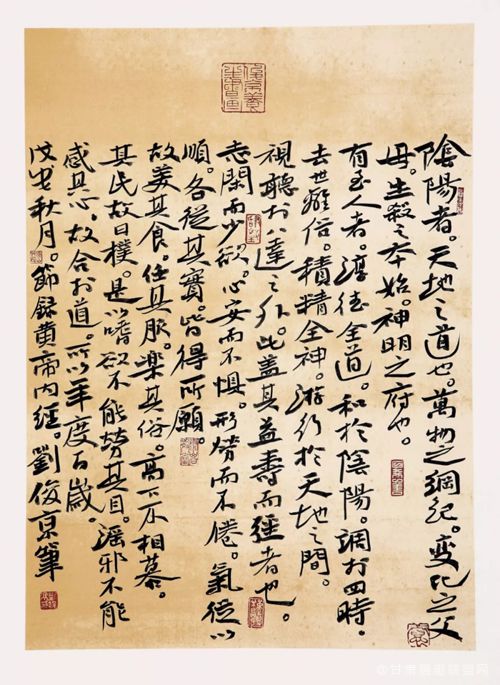 陰陽者。天地之道也。萬物之綱紀。變化之父
母。生殺之本始。神明之府也。
有至人者。淳德全道。和於陰陽。調於四時。
去世離俗。積精全神。游行於天地之間。
視聽於八達之外。此蓋其益壽而者也。
志閑而少欲。心安而不懼。形勞而不倦。氣從以
順。各從其實。皆得所願。
故美其食。任其服。樂其俗。高下不相慕。
其民故曰樸。是以嗜欲不能勞其目。淫邪不能
感其心。故合於道。所以年度百歲。
戊戌秋月。節録黄帝内經。劉俊京筆